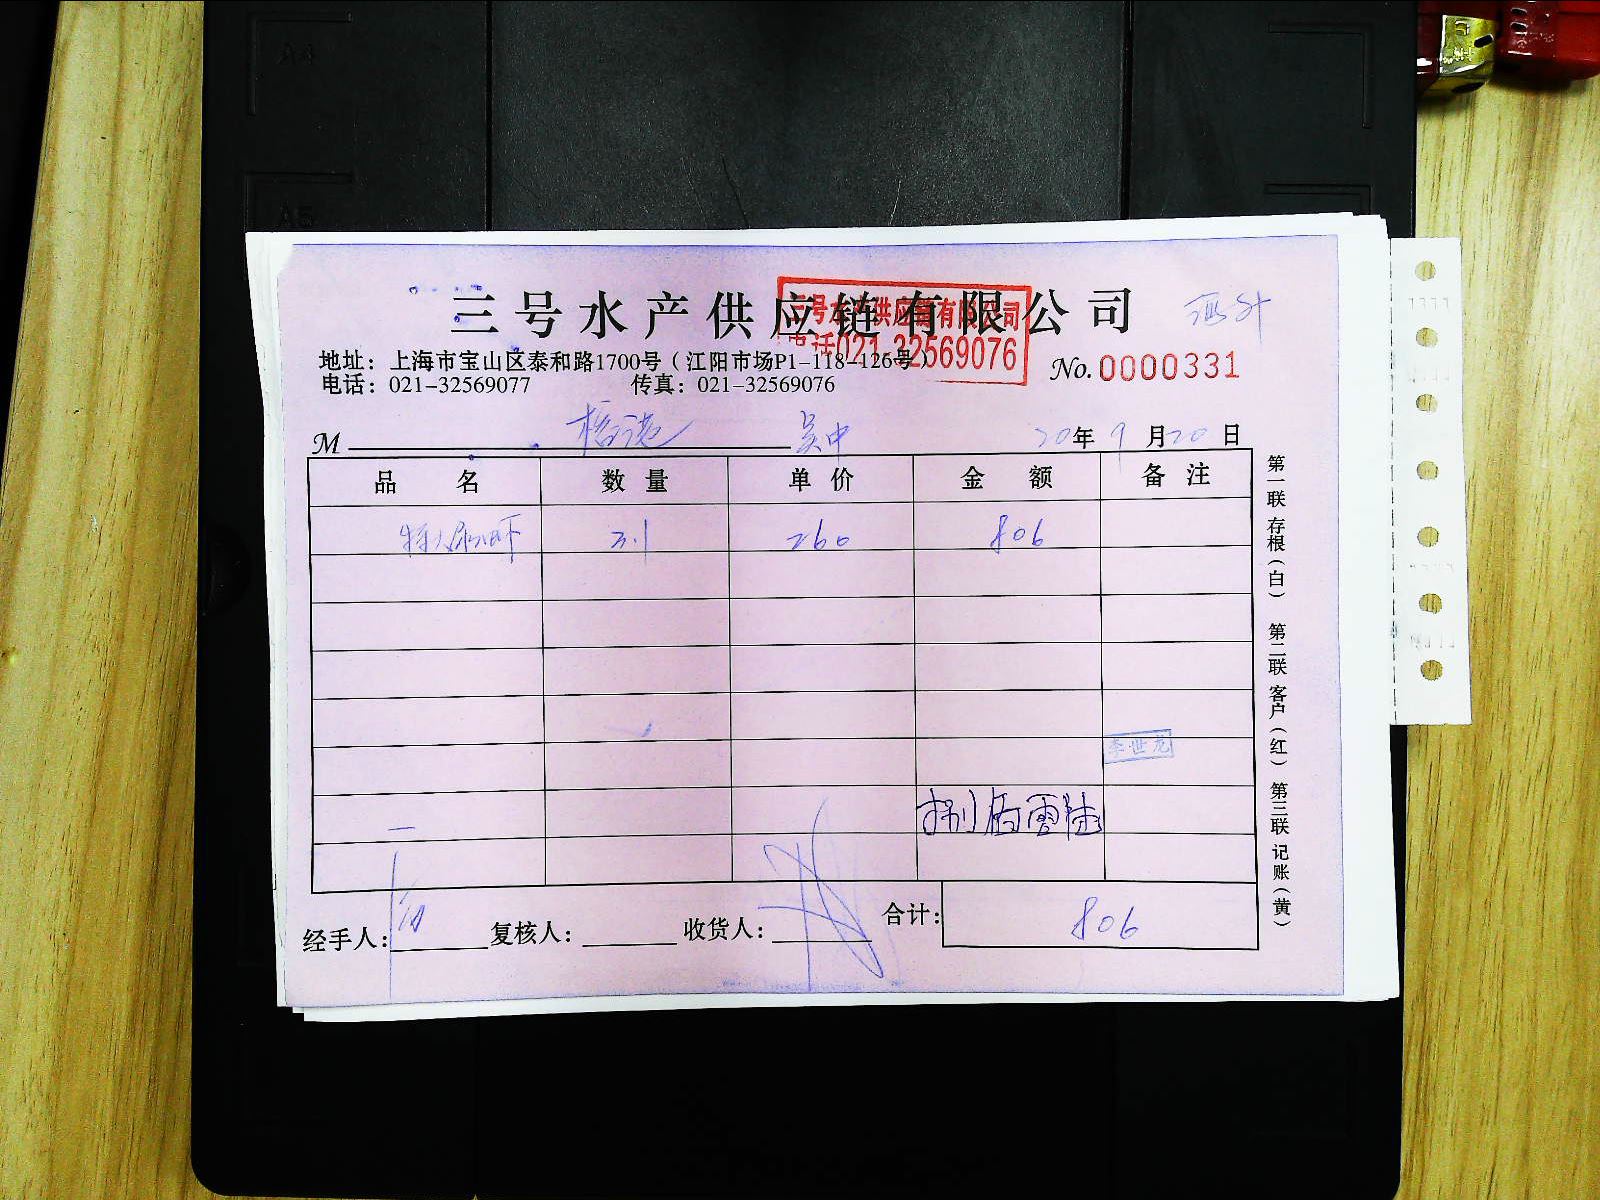 A4
A5
三号水产供应链有限公司
三号水产供应链有限公司
电话021-32569076
地址：上海市宝山区泰和路1700号（江阳市场P1-118-126号）
电话：021-32569077 传真：021-32569076
No.0000331
M 吴中 20年9月20日
品名 数量 单价 金额 备注
3.1 260 806
李世龙
捌佰零陆
经手人： 复核人： 收货人： 合计： 806
第一联 存根（白） 第二联 客户（红） 第三联 记账（黄）